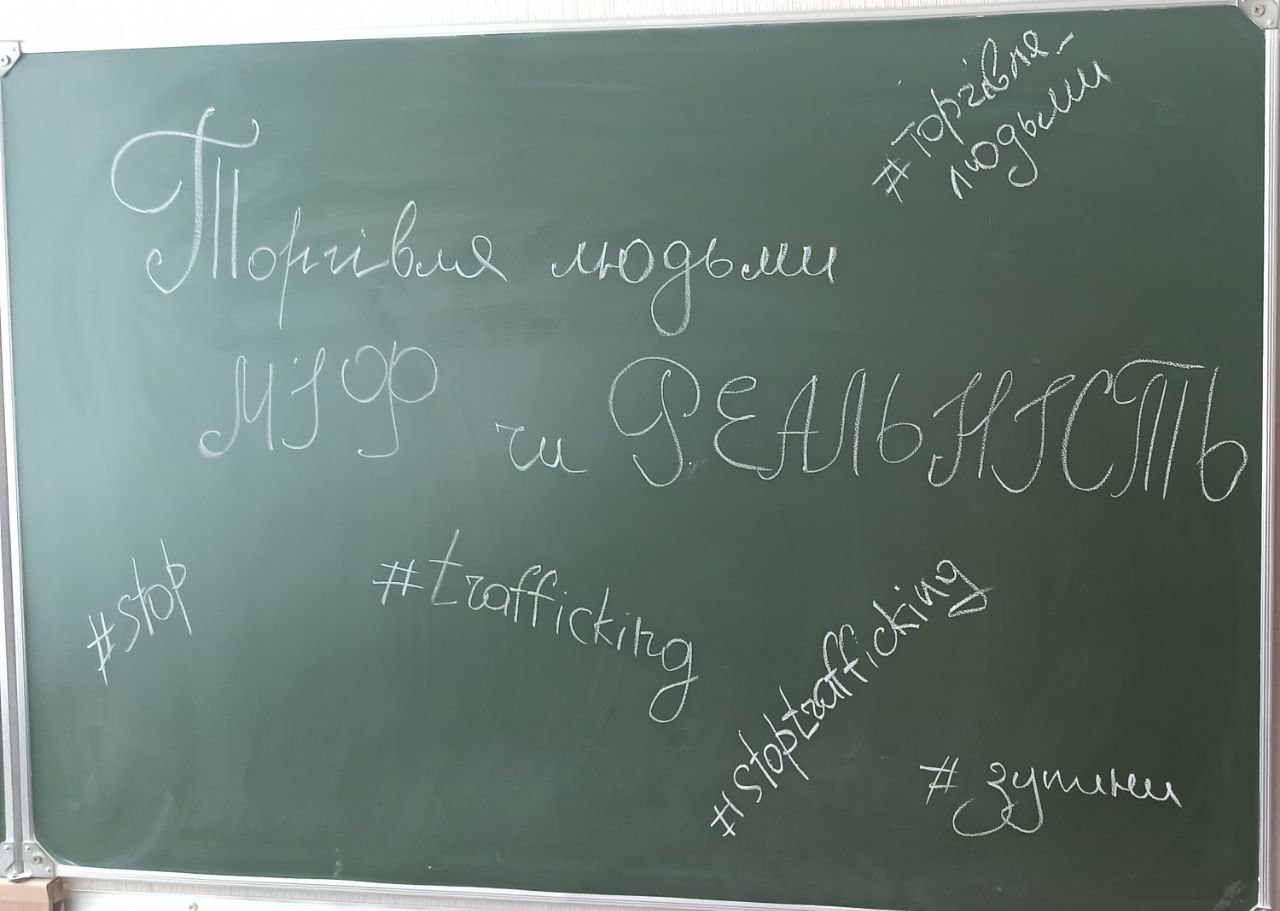 #торгівля_
людьми
Торгівля людьми
МІФ чи РЕАЛЬНІСТЬ
#stop
#trafficking
#stoptrafficking
#зупини